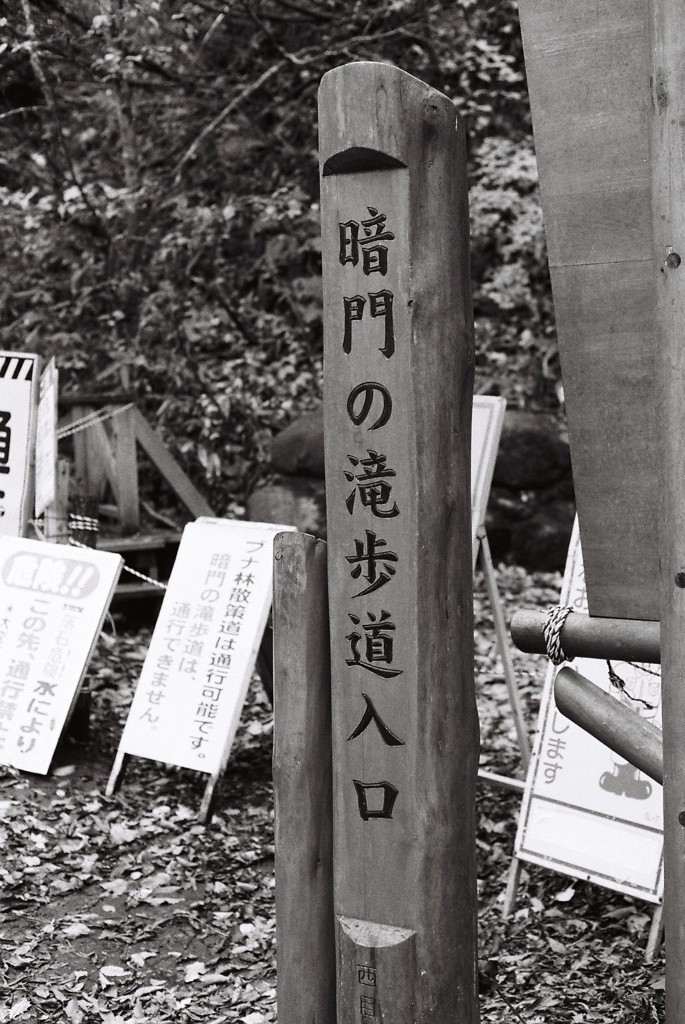 暗門の滝歩道入口
西目
ブナ林散策道は通行可能です。
暗門の滝歩道は、
通行できません。
危険!!
水により
この先、通行禁止
通
します